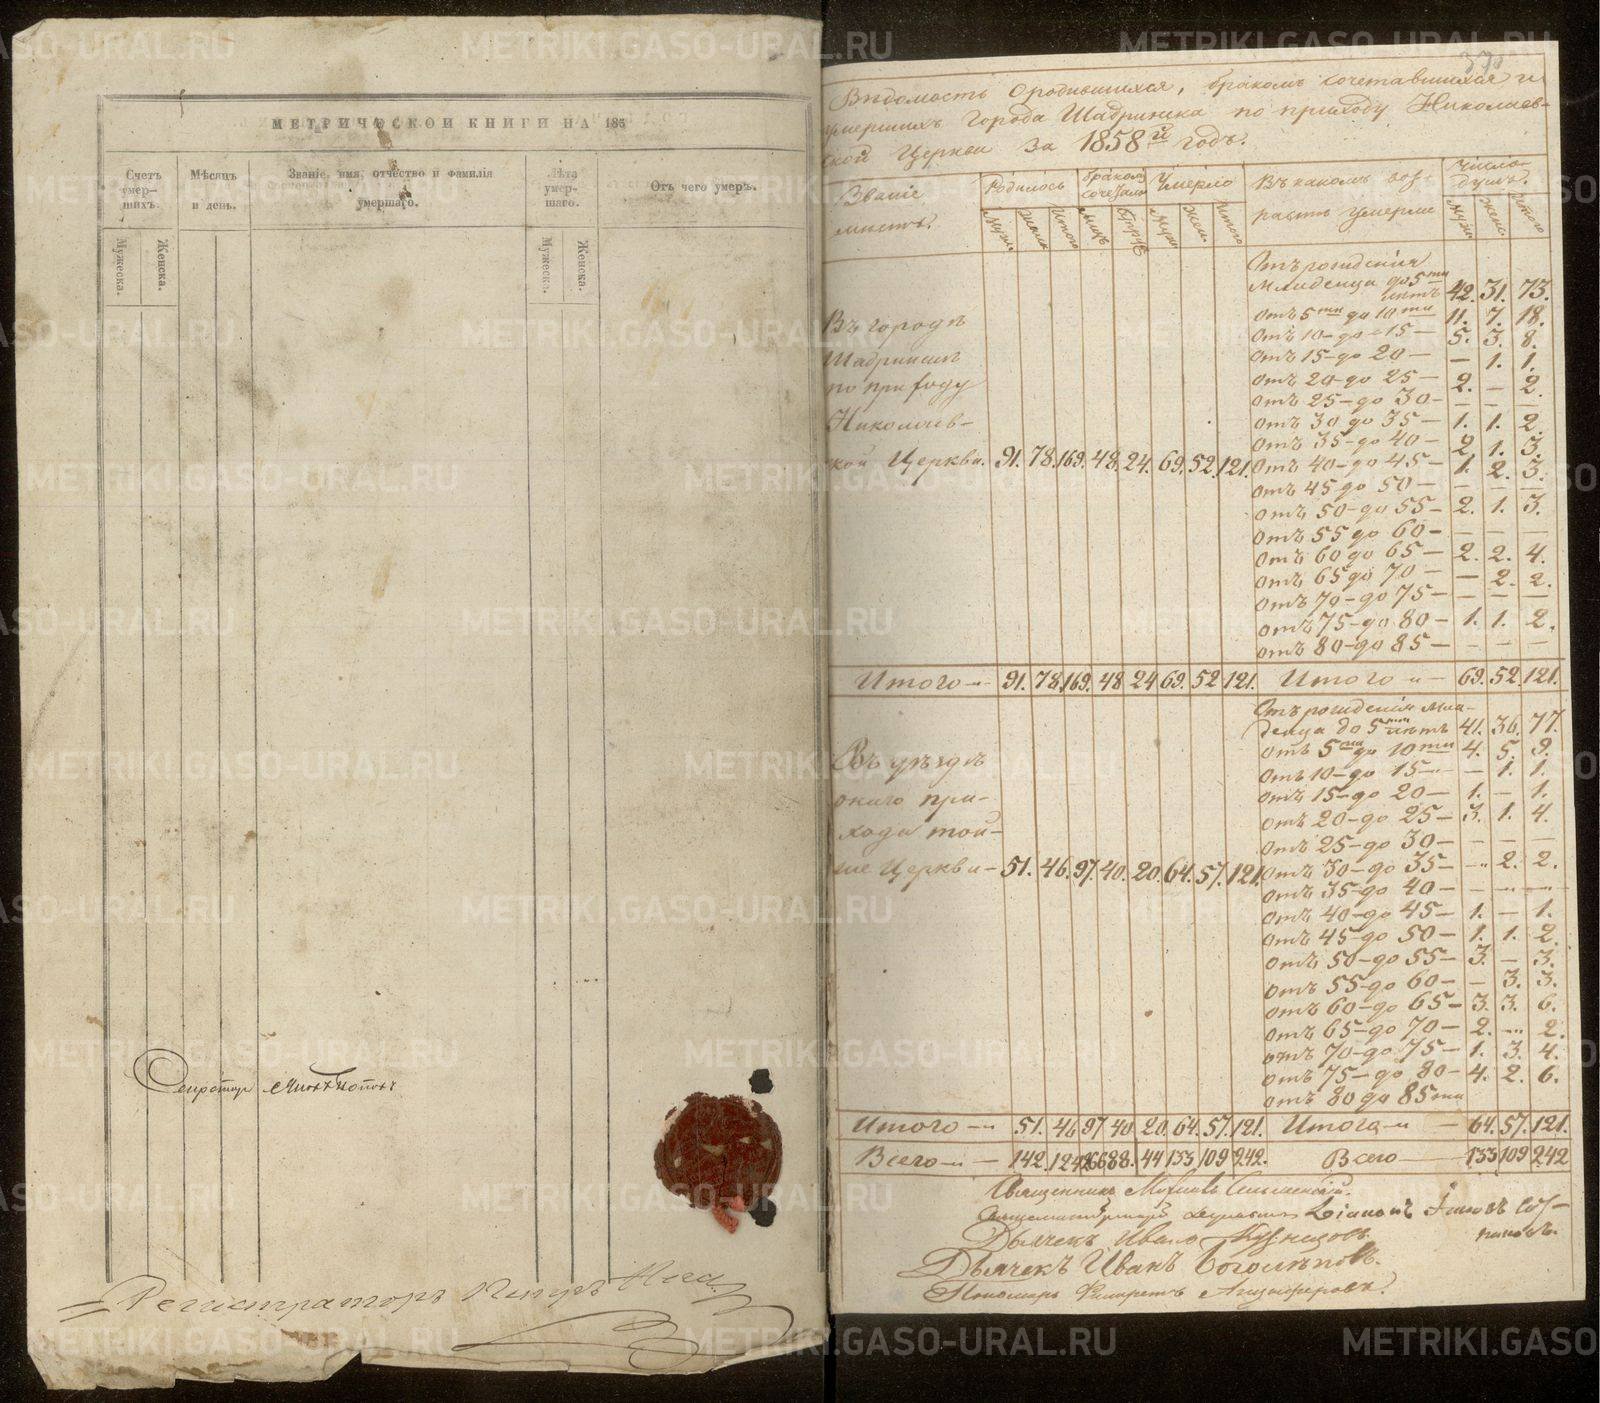 МЕТРИЧЕСКОЙ КНИГИ НА 185
Счетъ умер-шихъ.
Мѣсяцъ и день.
Званіе, имя, отчество и фамилія умершаго.
Лѣта умер-шаго.
Отъ чего умеръ.
Мужеска.
Женска.
Мужеска.
Женска.
Секретарь
Регистраторъ
Вѣдомость о родившихся, бракомъ сочетавшихся и
умершихъ города Шадринска по приходу Николаев-
ской Церкви за 1858й годъ.
Званіе мѣстъ.
Родилось
бракомъ сочетал.
Умерло
Въ какомъ воз-
растѣ умерли
Число душъ.
Муж. Жен. Итого
Муж. Жен. Итого
Муж. Жен. Итого
Отъ рожденія
младенца до 5ти лѣтъ 42. 31. 73.
отъ 5ти до 10ти 11. 7. 18.
отъ 10–до–15– 5. 3. 8.
отъ 15–до 20– – 1. 1.
отъ 20–до 25– 2. – 2.
отъ 25–до 30– – – –
отъ 30 до 35– 1. 1. 2.
отъ 35–до 40– 2. 1. 3.
отъ 40–до 45– 1. 2. 3.
отъ 45 до 50– – – –
отъ 50–до 55– 2. 1. 3.
отъ 55 до 60– – – –
отъ 60 до 65– 2. 2. 4.
отъ 65 до 70– – 2. 2.
отъ 70–до 75– – – –
отъ 75–до 80– 1. 1. 2.
отъ 80–до 85– – – –
Въ городѣ
Шадринскѣ
по приходу
Николаев-
кой Церкви. 91. 78. 169. 48. 24. 69. 52. 121.
Итого – 91. 78. 169. 48 24 69. 52 121. Итого – 69. 52. 121.
Отъ рожденія мла-
денца до 5ти лѣтъ 41. 36. 77.
отъ 5ти до 10ти 4. 5. 9.
отъ 10–до 15– – 1. 1.
отъ 15–до 20– 1. – 1.
отъ 20–до 25– 3. 1. 4.
отъ 25–до 30– – – –
отъ 30–до 35– – 2. 2.
отъ 35–до 40– – – –
отъ 40–до 45– 1. – 1.
отъ 45–до 50– 1. 1. 2.
отъ 50–до 55– 3. – 3.
отъ 55–до 60– – 3. 3.
отъ 60–до 65– 3. 3. 6.
отъ 65–до 70– 2. – 2.
отъ 70–до 75– 1. 3. 4.
отъ 75–до 80– 4. 2. 6.
отъ 80 до 85ти
Въ уѣздѣ
онаго при-
хода той-
же Церкви– 51. 46. 97. 40. 20. 64. 57. 121.
Итого – 51. 46 97 40. 20. 64. 57. 121. Итого – 64. 57. 121.
Всего – 142. 124 266 88. 44 133 109 242. Всего – 133 109 242
Священникъ
Дьячекъ Иванъ Кузнецовъ.
Дьячекъ Иванъ Боголѣповъ.
Пономарь
METRIKI.GASO-URAL.RU